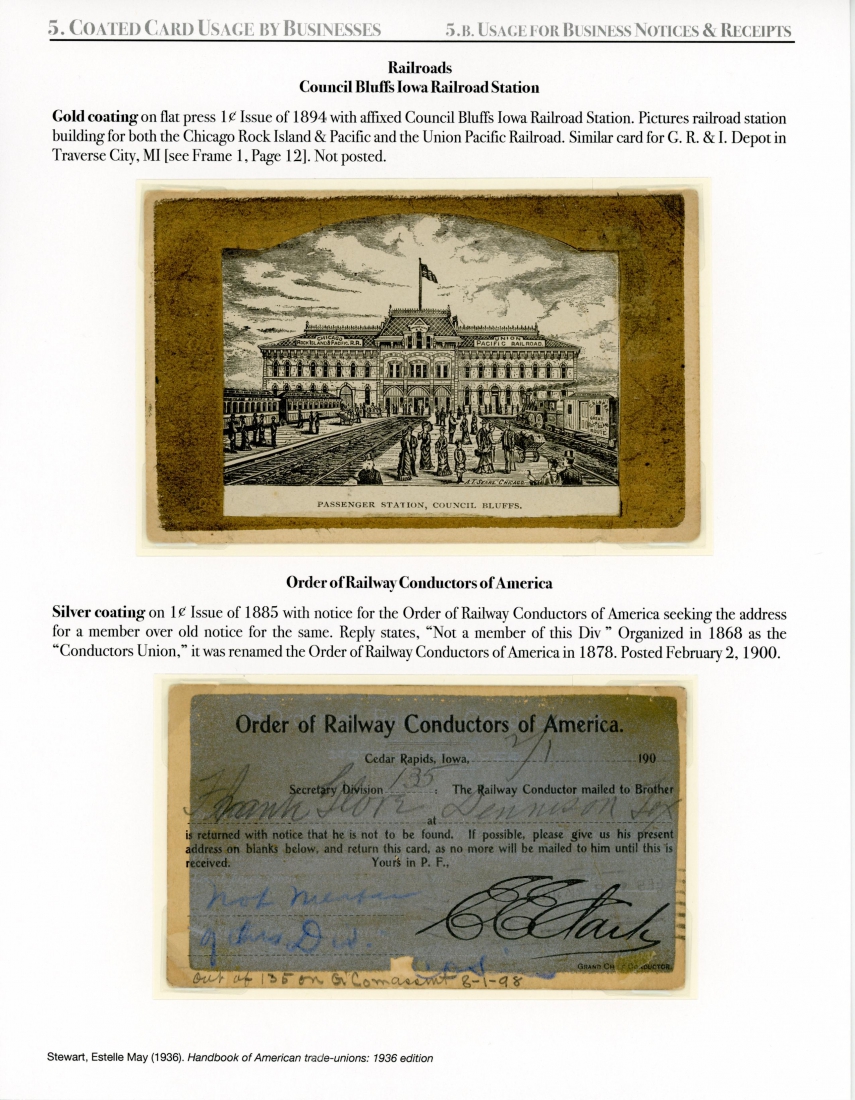 5. COATED CARD USAGE BY BUSINESSES 5.B. USAGE FOR BUSINESS NOTICES & RECEIPTS
Railroads
Council Bluffs Iowa Railroad Station
Gold coating on flat press 1¢ Issue of 1894 with affixed Council Bluffs Iowa Railroad Station. Pictures railroad station
building for both the Chicago Rock Island & Pacific and the Union Pacific Railroad. Similar card for G. R. & I. Depot in
Traverse City, MI [see Frame 1, Page 12]. Not posted.
CHICAGO
ROCK ISLAND & PACIFIC R.R.
UNION
PACIFIC RAILROAD.
GREAT
ROCK ISLAND
ROUTE
CHICAGO
PASSENGER STATION, COUNCIL BLUFFS.
Order of Railway Conductors of America
Silver coating on 1¢ Issue of 1885 with notice for the Order of Railway Conductors of America seeking the address
for a member over old notice for the same. Reply states, “Not a member of this Div ” Organized in 1868 as the
“Conductors Union,” it was renamed the Order of Railway Conductors of America in 1878. Posted February 2, 1900.
Order of Railway Conductors of America.
Cedar Rapids, Iowa, 2/1 190
Secretary Division 135 : The Railway Conductor mailed to Brother
Frank Glove at Dennison Tex
is returned with notice that he is not to be found. If possible, please give us his present
address on blanks below, and return this card, as no more will be mailed to him until this is
received. Yours in P. F.,
Not Member
of this Div.
E E Clark
GRAND CHIEF CONDUCTOR.
out of 135 on 8-1-98
Stewart, Estelle May (1936). Handbook of American trade-unions: 1936 edition